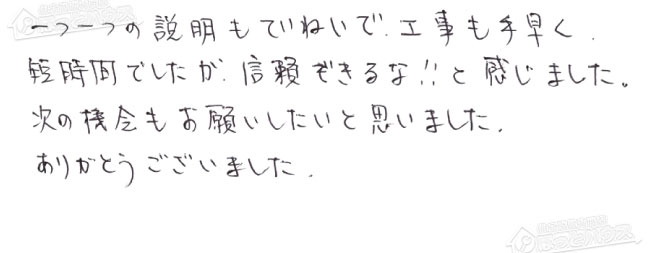 一つ一つの説明もていねいで、工事も手早く、
短時間でしたが、信頼できるな!!と感じました。
次の機会もお願いしたいと思いました。
ありがとうございました。